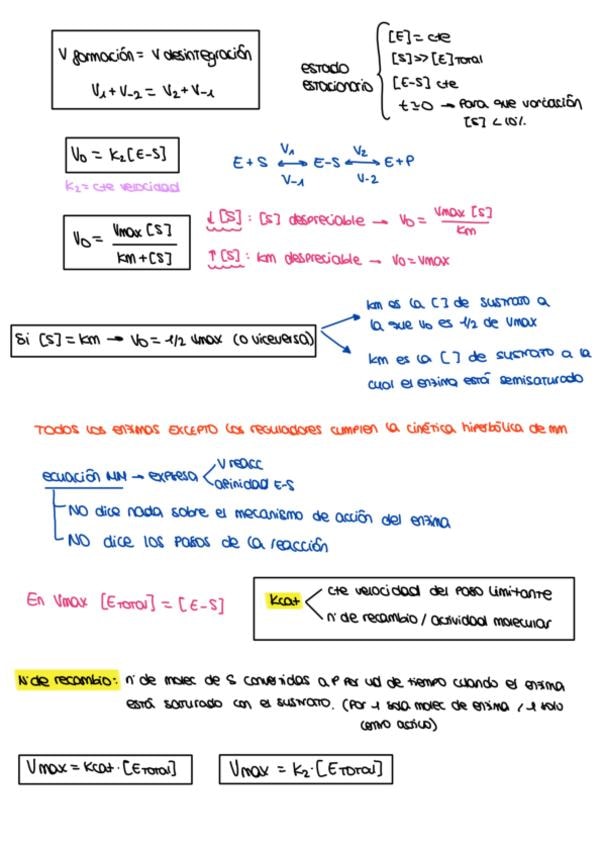 V formación = V desintegración
V1 + V-2 = V2 + V-1
estado estacionario
[E] = cte
[S] >> [E]TOTAL
[E-S] cte
t ≃ 0 → para que variación
[S] < 10%
V0 = K2 [E-S]
K2 = cte velocidad
E + S ⟷ E-S ⟷ E + P
V1 V2
V-1 V-2
V0 = Vmax [S] / Km + [S]
↓ [S] : [S] despreciable → V0 = Vmax [S] / Km
↑ [S] : Km despreciable → V0 = Vmax
Si [S] = Km → V0 = 1/2 Vmax (o viceversa)
Km es la [ ] de sustrato a
la que V0 es 1/2 de Vmax
Km es la [ ] de sustrato a la
cual el enzima está semisaturado
TODOS LOS ENZIMAS EXCEPTO LOS REGULADORES CUMPLEN LA CINÉTICA HIPERBÓLICA DE MM
ecuación MM → expresa
V reacc
afinidad E-S
NO dice nada sobre el mecanismo de acción del enzima
NO dice los pasos de la reacción
En Vmax [ETOTAL] = [E-S]
Kcat
cte velocidad del paso limitante
nº de recambio / actividad molecular
Nº de recambio: nº de molec de S convertidas a P por ud de tiempo cuando el enzima
está saturado con el sustrato. (por 1 sola molec de enzima / 1 solo
centro activo)
Vmax = Kcat · [ETOTAL]
Vmax = K2 · [ETOTAL]